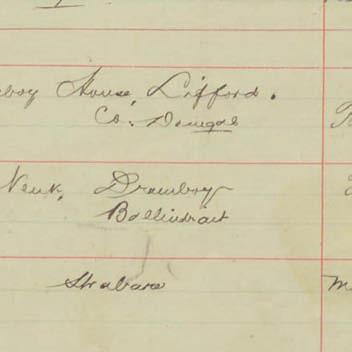 House, Lifford.
Co. Donegal
Neuk, Drumboy
Ballindrait
Strabane